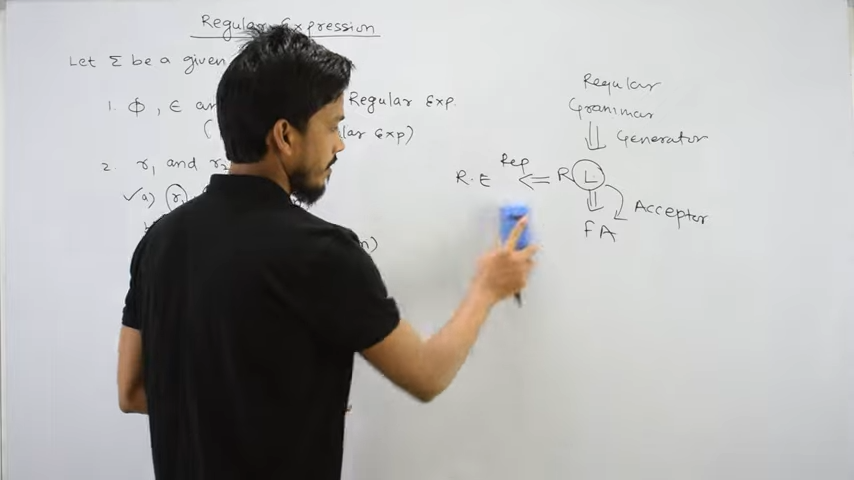 Regular Expression
Let Σ be a given
1. ϕ, ϵ an Regular Exp.
( lar Exp)
2. r₁ and r₂
✓ a) r₁
n)
Regular
Grammar
Generator
Rep
R.E ⇐ R L
Acceptor
FA